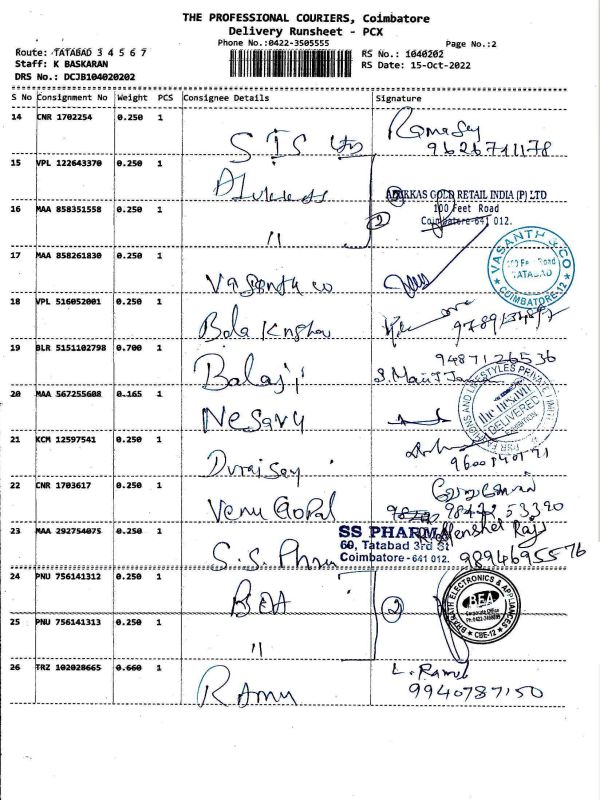 THE PROFESSIONAL COURIERS, Coimbatore
Delivery Runsheet - PCX
Phone No.:0422-3505555
Page No.:2
Route: TATABAD 3 4 5 6 7
RS No.: 1040202
Staff: K BASKARAN
RS Date: 15-Oct-2022
DRS No.: DCJB104020202
S No Consignment No Weight PCS Consignee Details Signature
14 CNR 1702254 0.250 1 STS Ltd
9626711178
15 VPL 122643370 0.250 1
ALUKKAS GOLD RETAIL INDIA (P) LTD
100 Feet Road
Coimbatore-641 012.
2
16 MAA 858351558 0.250 1 "
17 MAA 858261830 0.250 1 Vasanth co
VASANTH & CO
100 Feet Road
TATABAD
COIMBATORE-12
18 VPL 516052001 0.250 1 Bala
19 BLR 5151102798 0.700 1 Balaji
9487126536
20 MAA 567255608 0.165 1 Nesavu
DELIVERED
21 KCM 12597541 0.250 1 Duraisay
22 CNR 1703617 0.250 1 Venu Gopal
98422 53390
23 MAA 292754075 0.250 1 S.S. Phrm
SS PHARMA
60, Tatabad 3rd St
Coimbatore-641 012.
9894695576
24 PNU 756141312 0.250 1 BEA
2
BHARATH ELECTRONICS & APPLIANCES
BEA
Corporate Office
CBE-12
25 PNU 756141313 0.250 1 "
26 TRZ 102028665 0.660 1 Ramu
L. Ramu
9940787150